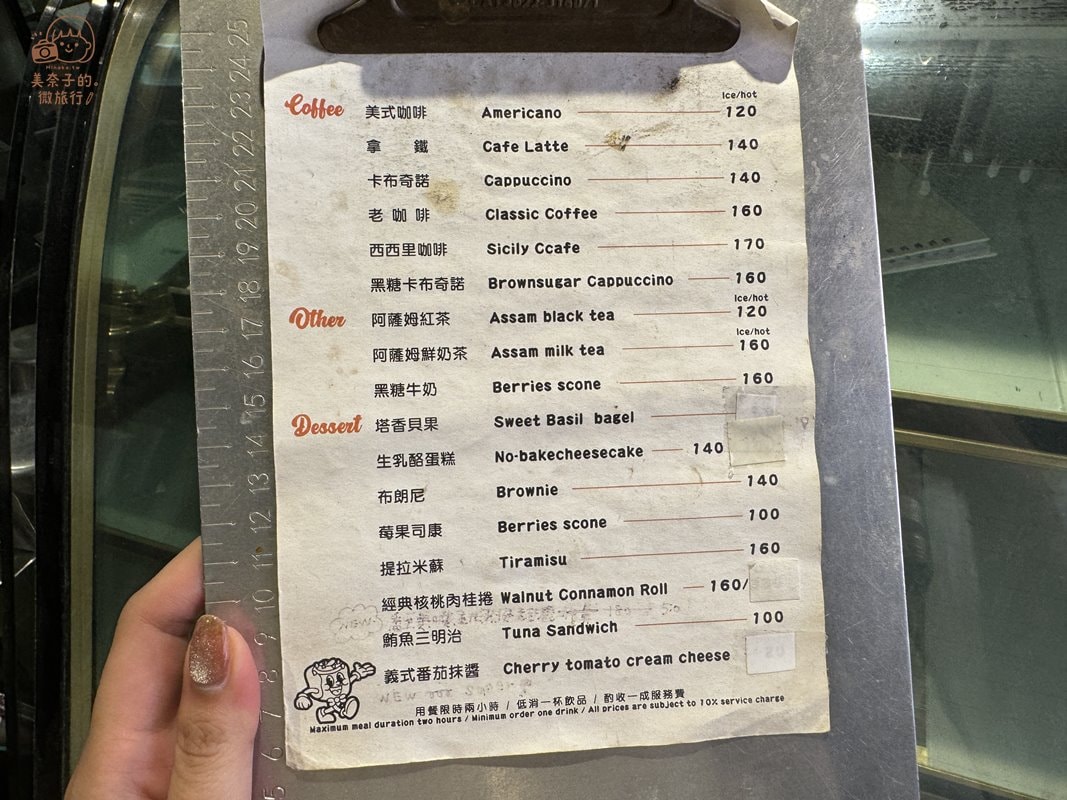 Hinako.tw
美奈子的。
微旅行
Ice/hot
Coffee 美式咖啡 Americano 120
拿 鐵 Cafe Latte 140
卡布奇諾 Cappuccino 140
老咖啡 Classic Coffee 160
西西里咖啡 Sicily Ccafe 170
黑糖卡布奇諾 Brownsugar Cappuccino 160
Ice/hot
Other 阿薩姆紅茶 Assam black tea 120
Ice/hot
阿薩姆鮮奶茶 Assam milk tea 160
黑糖牛奶 Berries scone 160
Dessert 塔香貝果 Sweet Basil bagel
生乳酪蛋糕 No-bakecheesecake 140
布朗尼 Brownie 140
莓果司康 Berries scone 100
提拉米蘇 Tiramisu 160
經典核桃肉桂捲 Walnut Connamon Roll 160/
NEW
鮪魚三明治 Tuna Sandwich 100
義式番茄抹醬 Cherry tomato cream cheese
NEW
用餐限時兩小時 / 低消一杯飲品 / 酌收一成服務費
Maximum meal duration two hours / Minimum order one drink / All prices are subject to 10% service charge
25
24
23
22
21
20
19
18
17
16
15
14
13
12
11
10
9
8
7
6
5